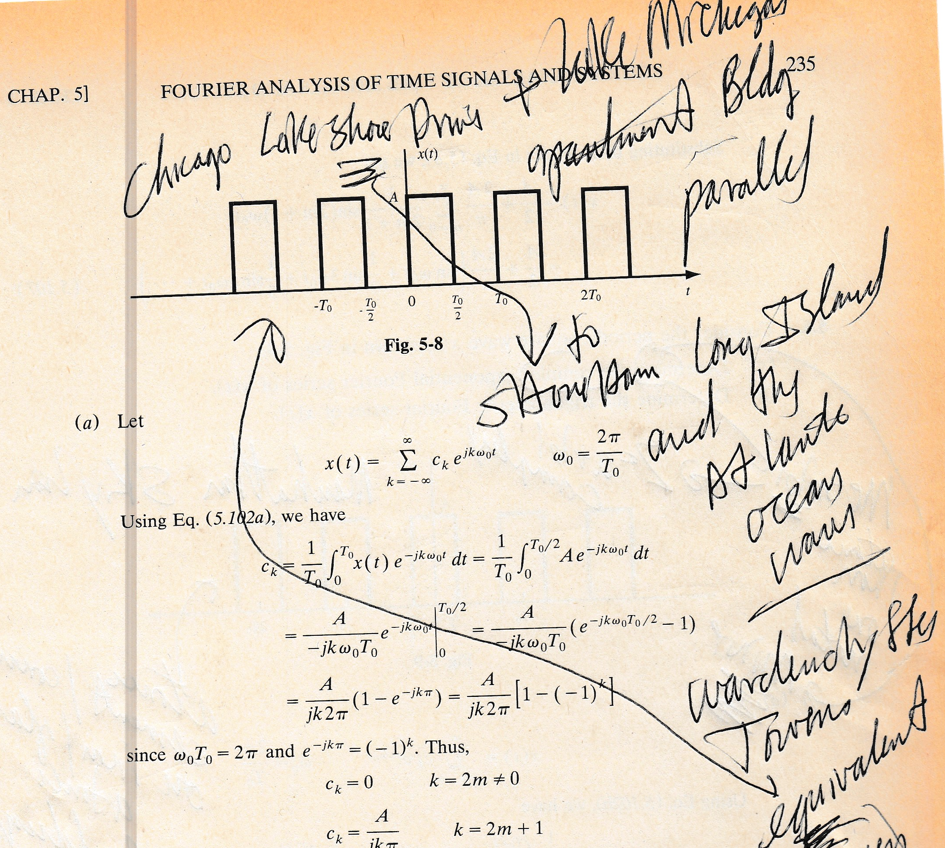 CHAP. 5] FOURIER ANALYSIS OF TIME SIGNALS AND SYSTEMS 235
+ Lake Michigan
Chicago Lake Shore Drive apartment Bldg
parallel
x(t)
A
-T₀ -T₀/2 0 T₀/2 T₀ 2T₀ t
Fig. 5-8
to
Shoreham Long Island
and the
Atlantic
ocean
waves
(a) Let
x(t) = ∑_{k=-∞}^{∞} c_k e^{jkω₀t} ω₀ = 2π/T₀
Using Eq. (5.102a), we have
c_k = 1/T₀ ∫₀^{T₀} x(t) e^{-jkω₀t} dt = 1/T₀ ∫₀^{T₀/2} A e^{-jkω₀t} dt
= A/(-jkω₀T₀) e^{-jkω₀t} |₀^{T₀/2} = A/(-jkω₀T₀) (e^{-jkω₀T₀/2} - 1)
= A/(jk2π) (1 - e^{-jkπ}) = A/(jk2π) [1 - (-1)^k]
since ω₀T₀ = 2π and e^{-jkπ} = (-1)^k. Thus,
c_k = 0 k = 2m ≠ 0
c_k = A/(jkπ) k = 2m + 1
Towers
equivalent